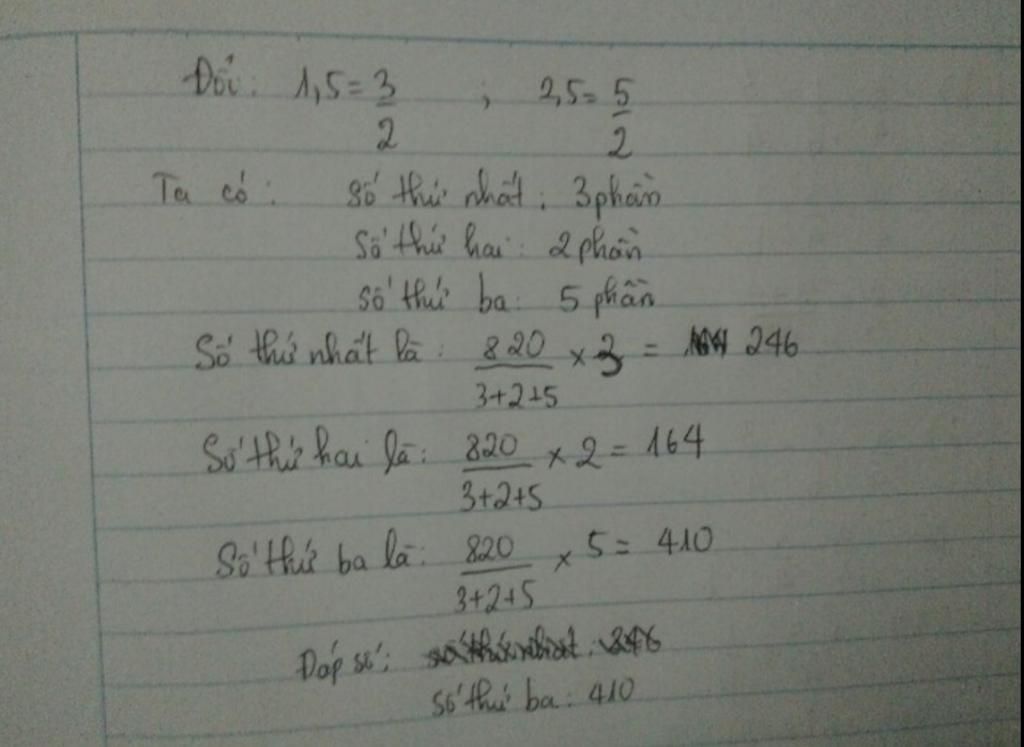 Đổi: 1,5 = 3/2 ; 2,5 = 5/2
Ta có: Số thứ nhất: 3 phần
Số thứ hai: 2 phần
Số thứ ba: 5 phần
Số thứ nhất là: 820/(3+2+5) × 3 = 246
Số thứ hai là: 820/(3+2+5) × 2 = 164
Số thứ ba là: 820/(3+2+5) × 5 = 410
Đáp số: số thứ nhất: 246
số thứ ba: 410